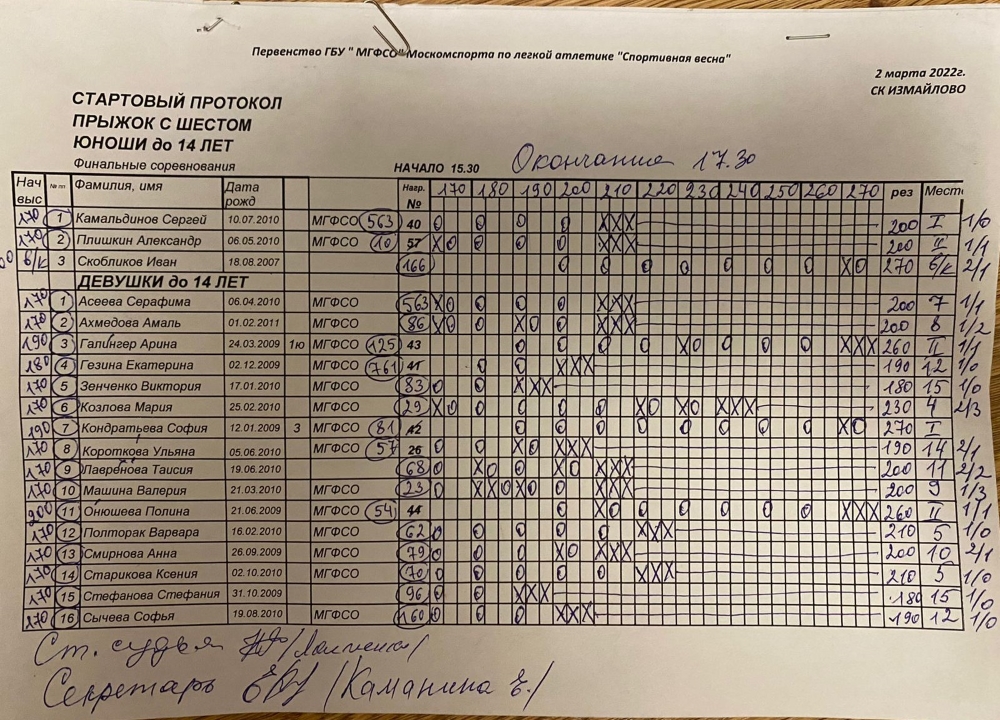 Первенство ГБУ " МГФСО" Москомспорта по легкой атлетике "Спортивная весна"
2 марта 2022г.
СК ИЗМАЙЛОВО
СТАРТОВЫЙ ПРОТОКОЛ
ПРЫЖОК С ШЕСТОМ
ЮНОШИ до 14 ЛЕТ
Финальные соревнования НАЧАЛО 15.30 Окончание 17.30
Нач выс № пп Фамилия, имя Дата рожд Нагр. № 170 180 190 200 210 220 230 240 250 260 270 рез Место
170 1 Камальдинов Сергей 10.07.2010 МГФСО 563 40 0 0 0 0 XXX 200 I 1/0
170 2 Плишкин Александр 06.05.2010 МГФСО 10 57 X0 0 0 0 XXX 200 II 1/1
б/к 3 Скобликов Иван 18.08.2007 166 0 0 0 0 0 0 0 X0 270 б/к 2/1
ДЕВУШКИ до 14 ЛЕТ
170 1 Асеева Серафима 06.04.2010 МГФСО 563 X0 0 0 0 XXX 200 7 1/1
170 2 Ахмедова Амаль 01.02.2011 МГФСО 86 X0 0 X0 0 XXX 200 8 1/2
190 3 Галингер Арина 24.03.2009 1ю МГФСО 125 43 0 0 0 0 X0 0 0 0 XXX 260 II 1/1
180 4 Гезина Екатерина 02.12.2009 МГФСО 761 41 0 0 XXX 190 12 1/0
170 5 Зенченко Виктория 17.01.2010 МГФСО 83 0 0 XXX 180 15 1/0
170 6 Козлова Мария 25.02.2010 МГФСО 29 X0 0 0 0 0 X0 X0 XXX 230 4 2/3
190 7 Кондратьева София 12.01.2009 3 МГФСО 81 42 0 0 0 0 0 0 0 0 X0 270 I
170 8 Короткова Ульяна 05.06.2010 МГФСО 57 26 0 0 X0 XXX 190 14 2/1
170 9 Лавренова Таисия 19.06.2010 68 0 X0 0 X0 XXX 200 11 2/2
170 10 Машина Валерия 21.03.2010 МГФСО 23 0 XX0 X0 0 XXX 200 9 1/3
200 11 Онюшева Полина 21.06.2009 МГФСО 54 44 0 X0 0 0 0 0 0 XXX 260 II 1/1
170 12 Полторак Варвара 16.02.2010 МГФСО 62 0 0 0 0 0 XXX 210 5 1/0
170 13 Смирнова Анна 26.09.2009 МГФСО 79 0 0 0 X0 XXX 200 10 2/1
170 14 Старикова Ксения 02.10.2010 МГФСО 70 0 0 0 0 0 XXX 210 5 1/0
170 15 Стефанова Стефания 31.10.2009 96 0 0 XXX 180 15 1/0
170 16 Сычева Софья 19.08.2010 МГФСО 160 0 0 0 XXX 190 12 1/0
Ст. судья
Секретарь /Каманина Е./